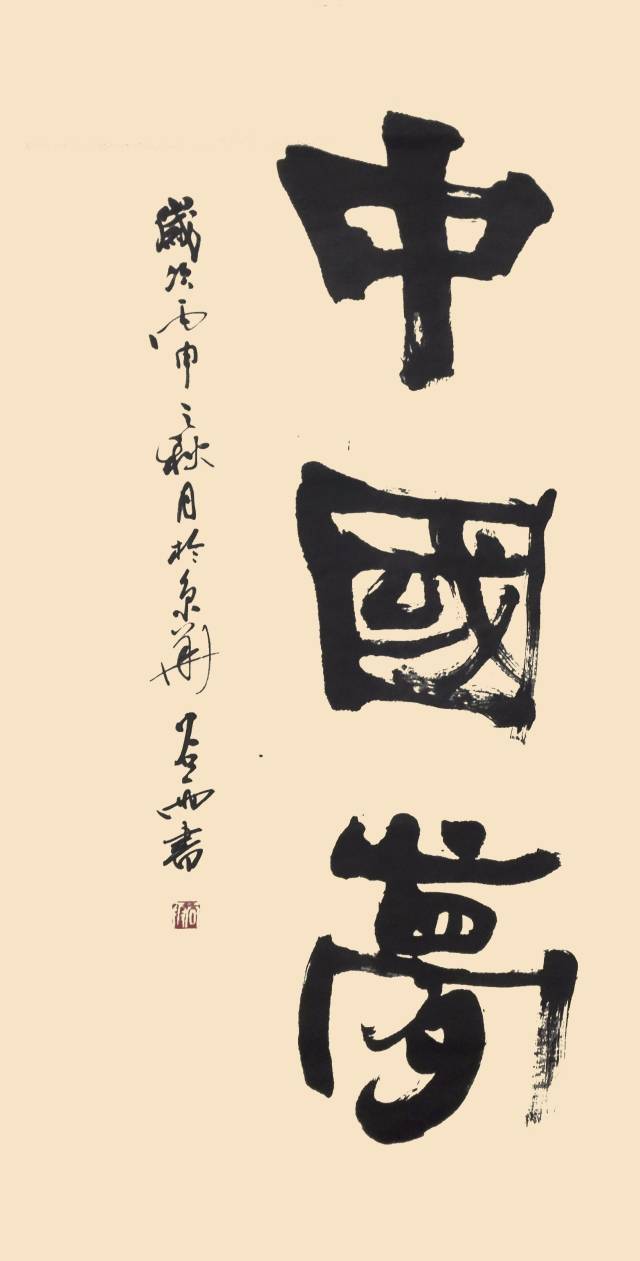 中國夢
歲次丙申之秋月於京華 谷雨書